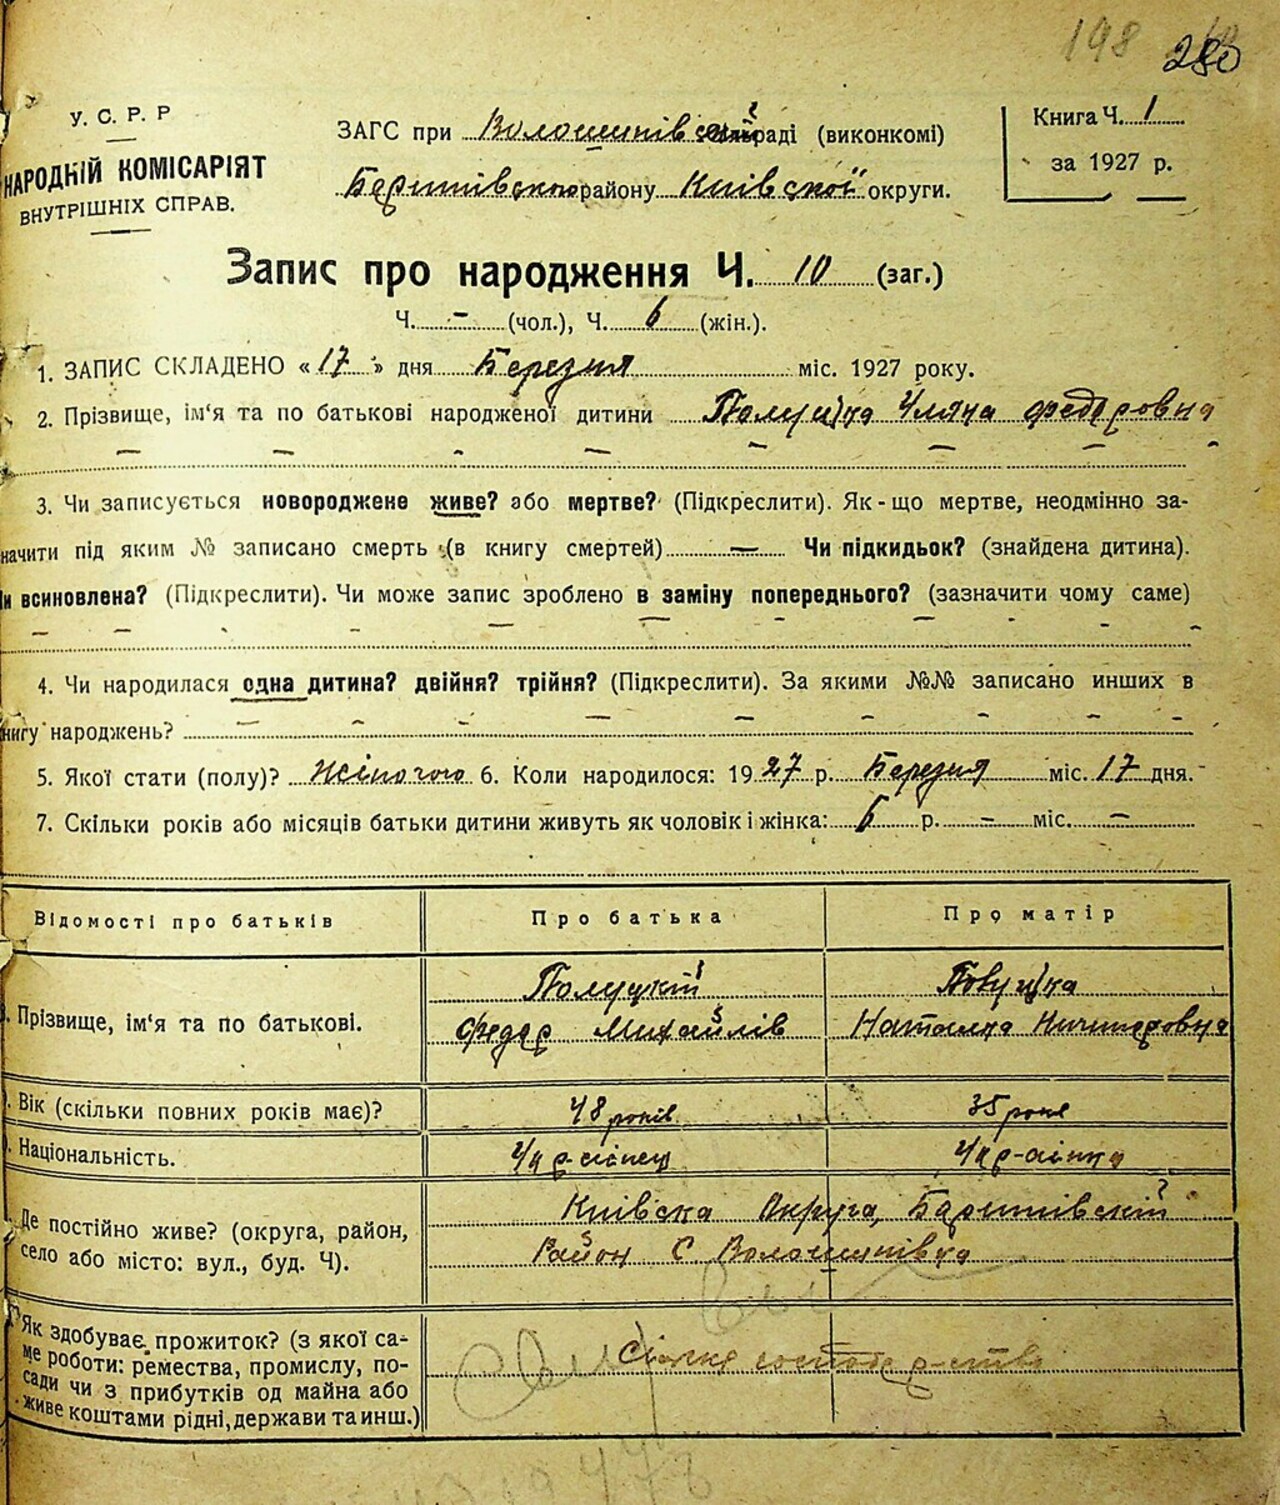 198 280
У. С. Р. Р
НАРОДНІЙ КОМІСАРІЯТ
ВНУТРІШНІХ СПРАВ.
ЗАГС при Волошинівській раді (виконкомі)
Баришівського району Київської округи.
Книга Ч. 1
за 1927 р.
Запис про народження Ч. 10 (заг.)
Ч. - (чол.), Ч. 6 (жін.).
1. ЗАПИС СКЛАДЕНО «17» дня Березня міс. 1927 року.
2. Прізвище, ім‘я та по батькові народженої дитини Полуцька Уляна Федоровна
3. Чи записується новороджене живе? або мертве? (Підкреслити). Як-що мертве, неодмінно за-
начити під яким № записано смерть (в книгу смертей) — Чи підкидьок? (знайдена дитина).
и всиновлена? (Підкреслити). Чи може запис зроблено в заміну попереднього? (зазначити чому саме)
4. Чи народилася одна дитина? двійня? трійня? (Підкреслити). За якими №№ записано инших в
нигу народжень?
5. Якої стати (полу)? Жіночого 6. Коли народилося: 1927 р. Березня міс. 17 дня.
7. Скільки років або місяців батьки дитини живуть як чоловік і жінка: 6 р. - міс. -
Відомості про батьків Про батька Про матір
. Прізвище, ім‘я та по батькові. Полуцкій Федор Михайлів
Наталка Ничипоровна
. Вік (скільки повних років має)? 48 років 35 років
. Національність. Укр-аїнец Укр-аїнка
Де постійно живе? (округа, район, Київска Округа, Баришівскій
село або місто: вул., буд. Ч). Район С. Волошинівка
Як здобуває прожиток? (з якої са-
ме роботи: ремества, промислу, по- Сільске господарство
сади чи з прибутків од майна або
живе коштами рідні, держави та инш.)